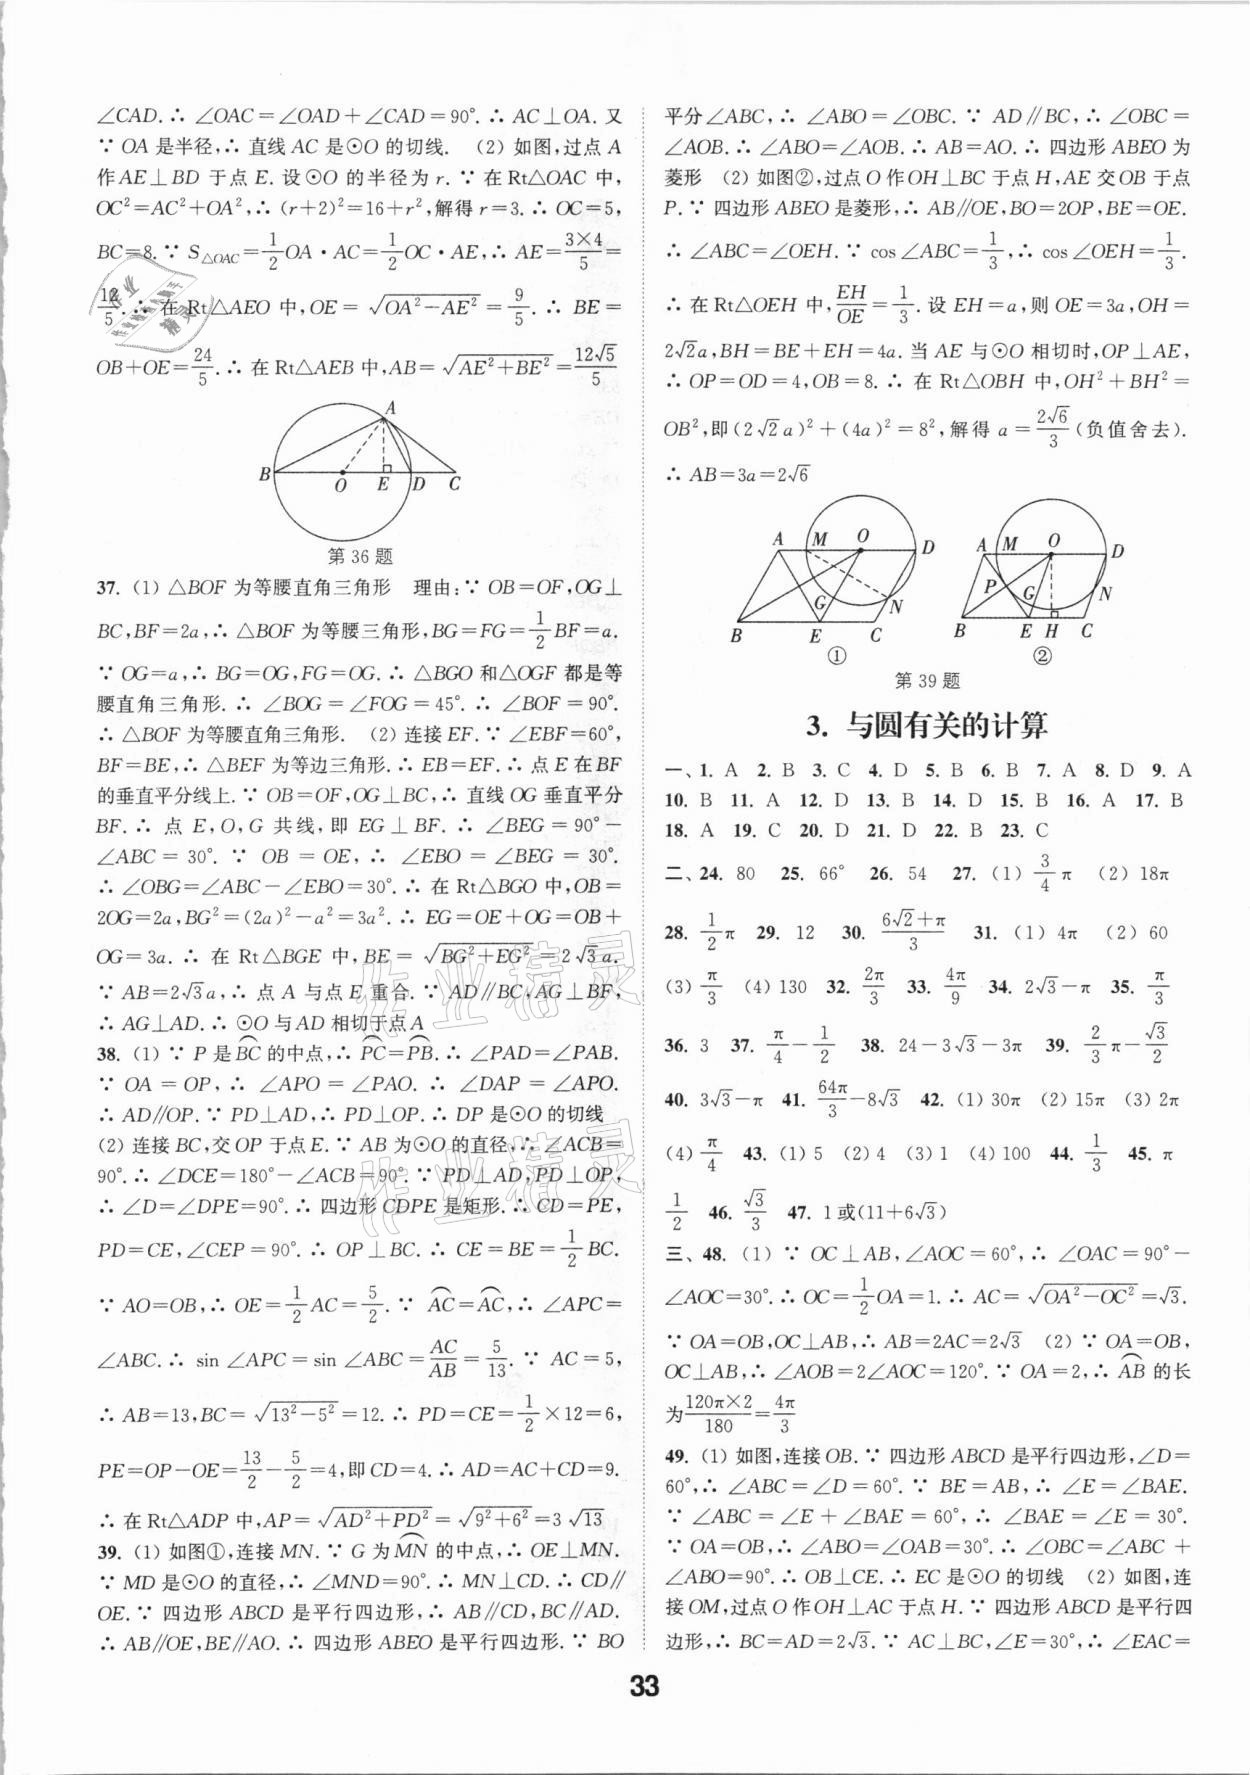 ∠CAD.∴ ∠OAC=∠OAD+∠CAD=90°.∴ AC⊥OA. 又
∵ OA 是半径,∴ 直线 AC 是⊙O 的切线. (2) 如图,过点 A
作 AE⊥BD 于点 E. 设⊙O 的半径为 r. ∵ 在 Rt△OAC 中,
OC²=AC²+OA²,∴ (r+2)²=16+r²,解得 r=3.∴ OC=5,
BC=8.∵ S△OAC=1/2 OA·AC=1/2 OC·AE,∴ AE=(3×4)/5=
12/5.∴ 在 Rt△AEO 中,OE=√(OA²-AE²)=9/5.∴ BE=
OB+OE=24/5.∴ 在 Rt△AEB 中,AB=√(AE²+BE²)=12√5/5
A
B O E D C
第 36 题
37. (1) △BOF 为等腰直角三角形 理由:∵ OB=OF,OG⊥
BC,BF=2a,∴ △BOF 为等腰三角形,BG=FG=1/2 BF=a.
∵ OG=a,∴ BG=OG,FG=OG.∴ △BGO 和△OGF 都是等
腰直角三角形.∴ ∠BOG=∠FOG=45°.∴ ∠BOF=90°.
∴ △BOF 为等腰直角三角形. (2) 连接 EF.∵ ∠EBF=60°,
BF=BE,∴ △BEF 为等边三角形.∴ EB=EF.∴ 点 E 在 BF
的垂直平分线上.∵ OB=OF,OG⊥BC,∴ 直线 OG 垂直平分
BF.∴ 点 E,O,G 共线,即 EG⊥BF.∴ ∠BEG=90°-
∠ABC=30°.∵ OB=OE,∴ ∠EBO=∠BEG=30°.
∴ ∠OBG=∠ABC-∠EBO=30°.∴ 在 Rt△BGO 中,OB=
2OG=2a,BG²=(2a)²-a²=3a².∴ EG=OE+OG=OB+
OG=3a.∴ 在 Rt△BGE 中,BE=√(BG²+EG²)=2√3a.
∵ AB=2√3a,∴ 点 A 与点 E 重合.∵ AD∥BC,AG⊥BF,
∴ AG⊥AD.∴ ⊙O 与 AD 相切于点 A
38. (1) ∵ P 是⌒BC 的中点,∴ ⌒PC=⌒PB.∴ ∠PAD=∠PAB.
∵ OA=OP,∴ ∠APO=∠PAO.∴ ∠DAP=∠APO.
∴ AD∥OP.∵ PD⊥AD,∴ PD⊥OP.∴ DP 是⊙O 的切线
(2) 连接 BC,交 OP 于点 E.∵ AB 为⊙O 的直径,∴ ∠ACB=
90°.∴ ∠DCE=180°-∠ACB=90°.∵ PD⊥AD,PD⊥OP,
∴ ∠D=∠DPE=90°.∴ 四边形 CDPE 是矩形.∴ CD=PE,
PD=CE,∠CEP=90°.∴ OP⊥BC.∴ CE=BE=1/2 BC.
∵ AO=OB,∴ OE=1/2 AC=5/2.∵ ⌒AC=⌒AC,∴ ∠APC=
∠ABC.∴ sin ∠APC=sin ∠ABC=AC/AB=5/13.∵ AC=5,
∴ AB=13,BC=√(13²-5²)=12.∴ PD=CE=1/2×12=6,
PE=OP-OE=13/2-5/2=4,即 CD=4.∴ AD=AC+CD=9.
∴ 在 Rt△ADP 中,AP=√(AD²+PD²)=√(9²+6²)=3√13
39. (1) 如图①,连接 MN.∵ G 为⌒MN 的中点,∴ OE⊥MN.
∵ MD 是⊙O 的直径,∴ ∠MND=90°.∴ MN⊥CD.∴ CD∥
OE.∵ 四边形 ABCD 是平行四边形,∴ AB∥CD,BC∥AD.
∴ AB∥OE,BE∥AO.∴ 四边形 ABEO 是平行四边形.∵ BO
平分∠ABC,∴ ∠ABO=∠OBC.∵ AD∥BC,∴ ∠OBC=
∠AOB.∴ ∠ABO=∠AOB.∴ AB=AO.∴ 四边形 ABEO 为
菱形 (2) 如图②,过点 O 作 OH⊥BC 于点 H,AE 交 OB 于点
P.∵ 四边形 ABEO 是菱形,∴ AB∥OE,BO=2OP,BE=OE.
∴ ∠ABC=∠OEH.∵ cos ∠ABC=1/3,∴ cos ∠OEH=1/3.
∴ 在 Rt△OEH 中,EH/OE=1/3.设 EH=a,则 OE=3a,OH=
2√2a,BH=BE+EH=4a.当 AE 与⊙O 相切时,OP⊥AE,
∴ OP=OD=4,OB=8.∴ 在 Rt△OBH 中,OH²+BH²=
OB²,即 (2√2a)²+(4a)²=8²,解得 a=2√6/3 (负值舍去).
∴ AB=3a=2√6
A M O D G N B E C
①
A M O D P G N B E H C
②
第 39 题
3. 与圆有关的计算
一、1. A 2. B 3. C 4. D 5. B 6. B 7. A 8. D 9. A
10. B 11. A 12. D 13. B 14. D 15. B 16. A 17. B
18. A 19. C 20. D 21. D 22. B 23. C
二、24. 80 25. 66° 26. 54 27. (1) 3/4 π (2) 18π
28. 1/2 π 29. 12 30. (6√2+π)/3 31. (1) 4π (2) 60
(3) π/3 (4) 130 32. 2π/3 33. 4π/9 34. 2√3-π 35. π/3
36. 3 37. π/4-1/2 38. 24-3√3-3π 39. 2/3 π-√3/2
40. 3√3-π 41. 64π/3-8√3 42. (1) 30π (2) 15π (3) 2π
(4) π/4 43. (1) 5 (2) 4 (3) 1 (4) 100 44. 1/3 45. π
1/2 46. √3/3 47. 1或(11+6√3)
三、48. (1) ∵ OC⊥AB,∠AOC=60°,∴ ∠OAC=90°-
∠AOC=30°.∴ OC=1/2 OA=1.∴ AC=√(OA²-OC²)=√3.
∵ OA=OB,OC⊥AB,∴ AB=2AC=2√3 (2) ∵ OA=OB,
OC⊥AB,∴ ∠AOB=2∠AOC=120°.∵ OA=2,∴ ⌒AB 的长
为(120π×2)/180=4π/3
49. (1) 如图,连接 OB.∵ 四边形 ABCD 是平行四边形,∠D=
60°,∴ ∠ABC=∠D=60°.∵ BE=AB,∴ ∠E=∠BAE.
∵ ∠ABC=∠E+∠BAE=60°,∴ ∠BAE=∠E=30°.
∵ OA=OB,∴ ∠ABO=∠OAB=30°.∴ ∠OBC=∠ABC+
∠ABO=90°.∴ OB⊥CE.∴ EC 是⊙O 的切线 (2) 如图,连
接 OM,过点 O 作 OH⊥AC 于点 H.∵ 四边形 ABCD 是平行四
边形,∴ BC=AD=2√3.∵ AC⊥BC,∠E=30°,∴ ∠EAC=
33
作业精灵
作业精灵